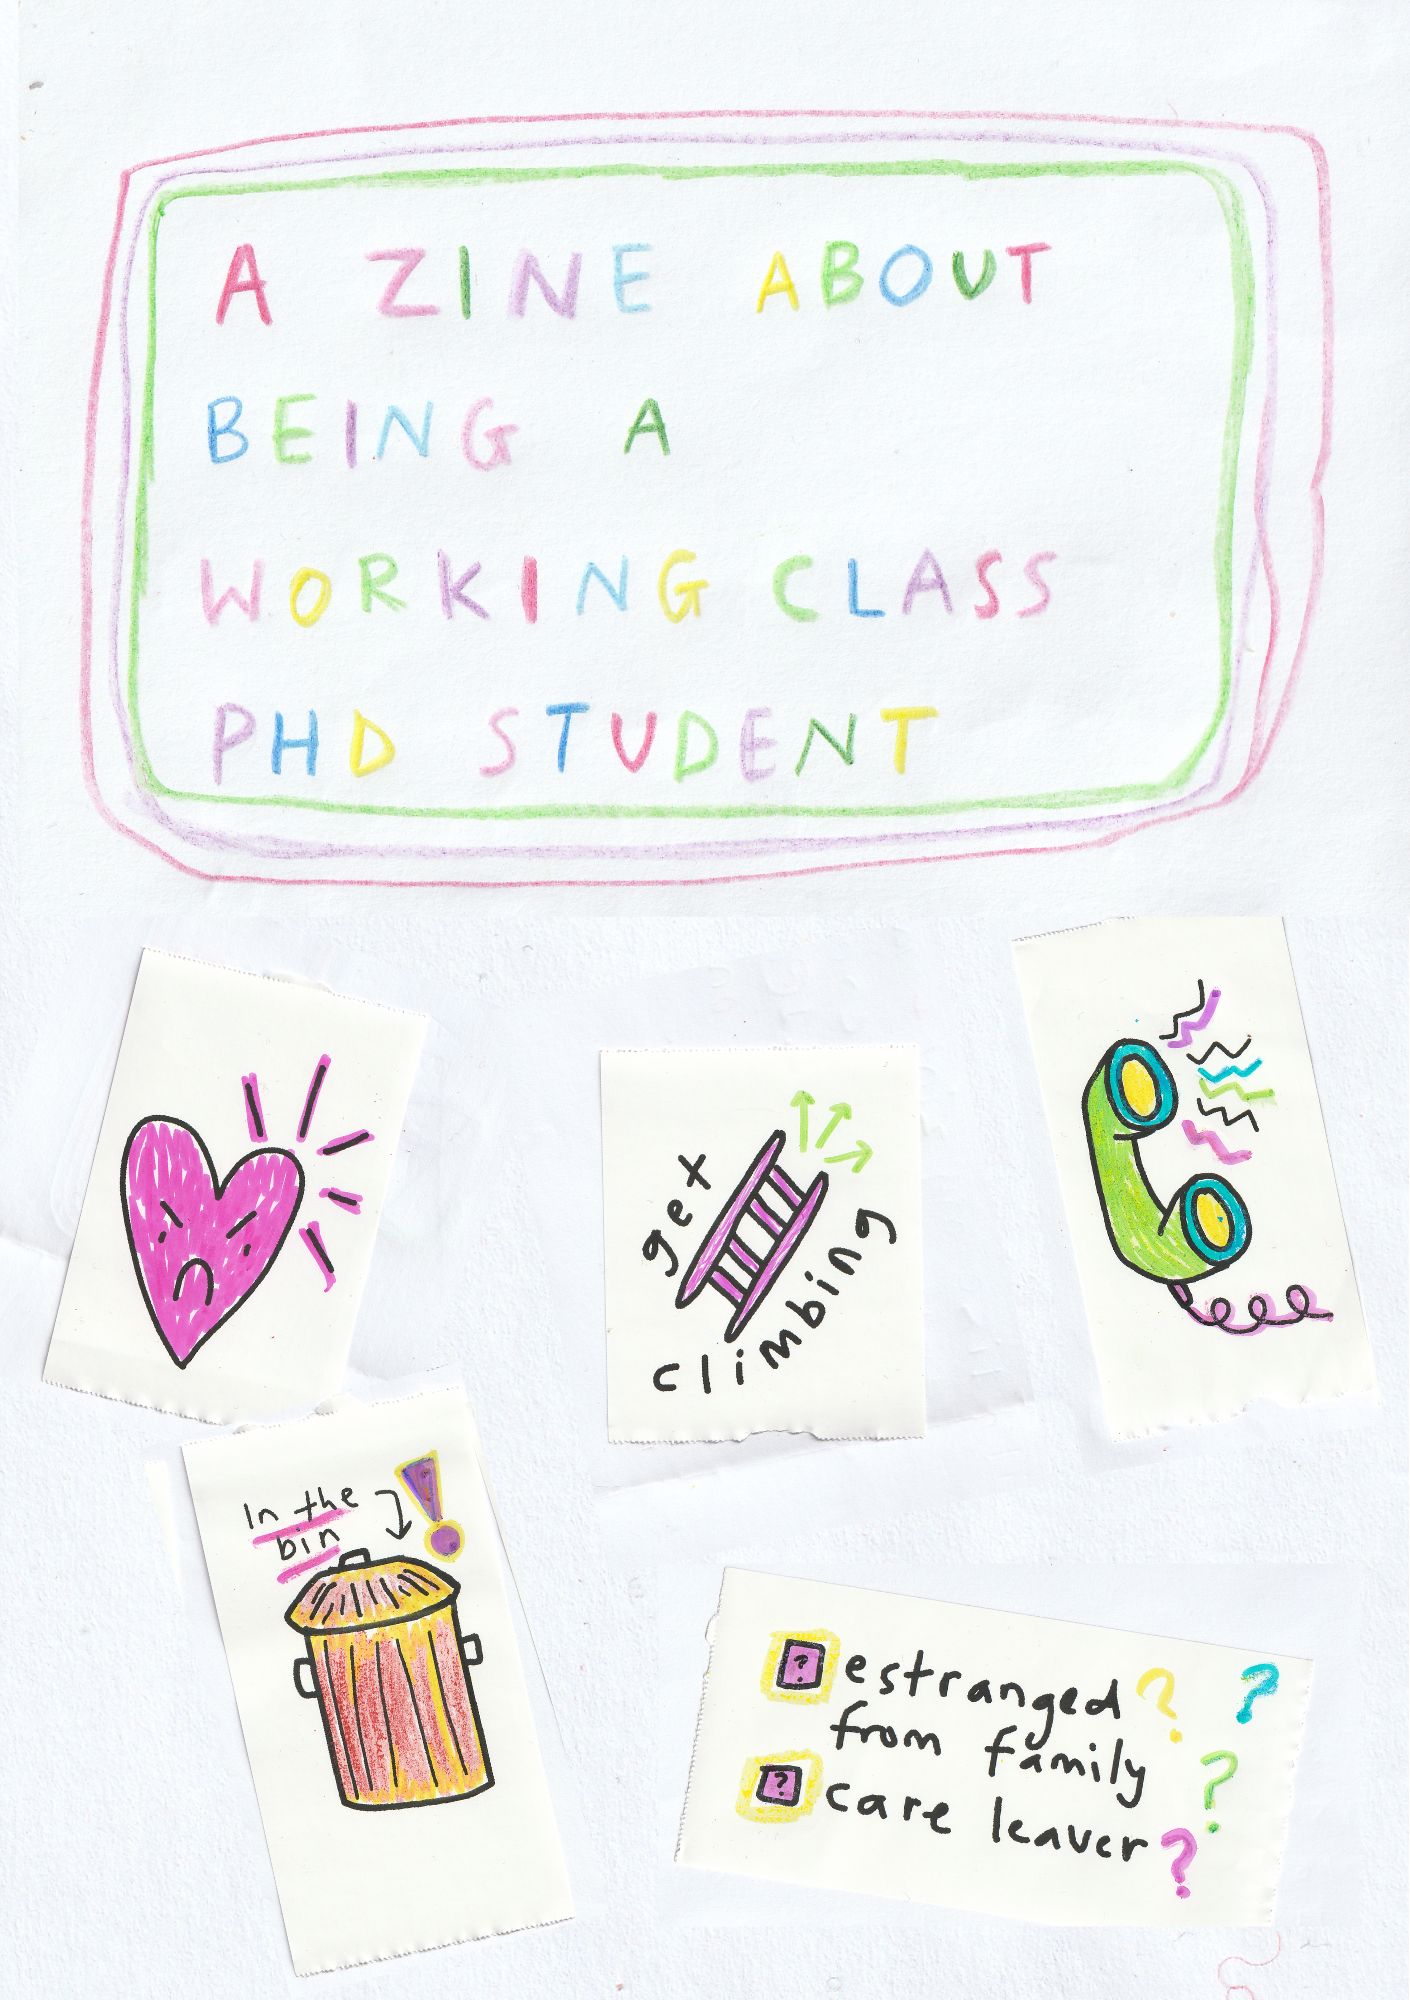 A ZINE ABOUT
BEING A
WORKING CLASS
PHD STUDENT
get
climbing
In the
bin
!
? estranged ? ?
from family ?
? care leaver ?